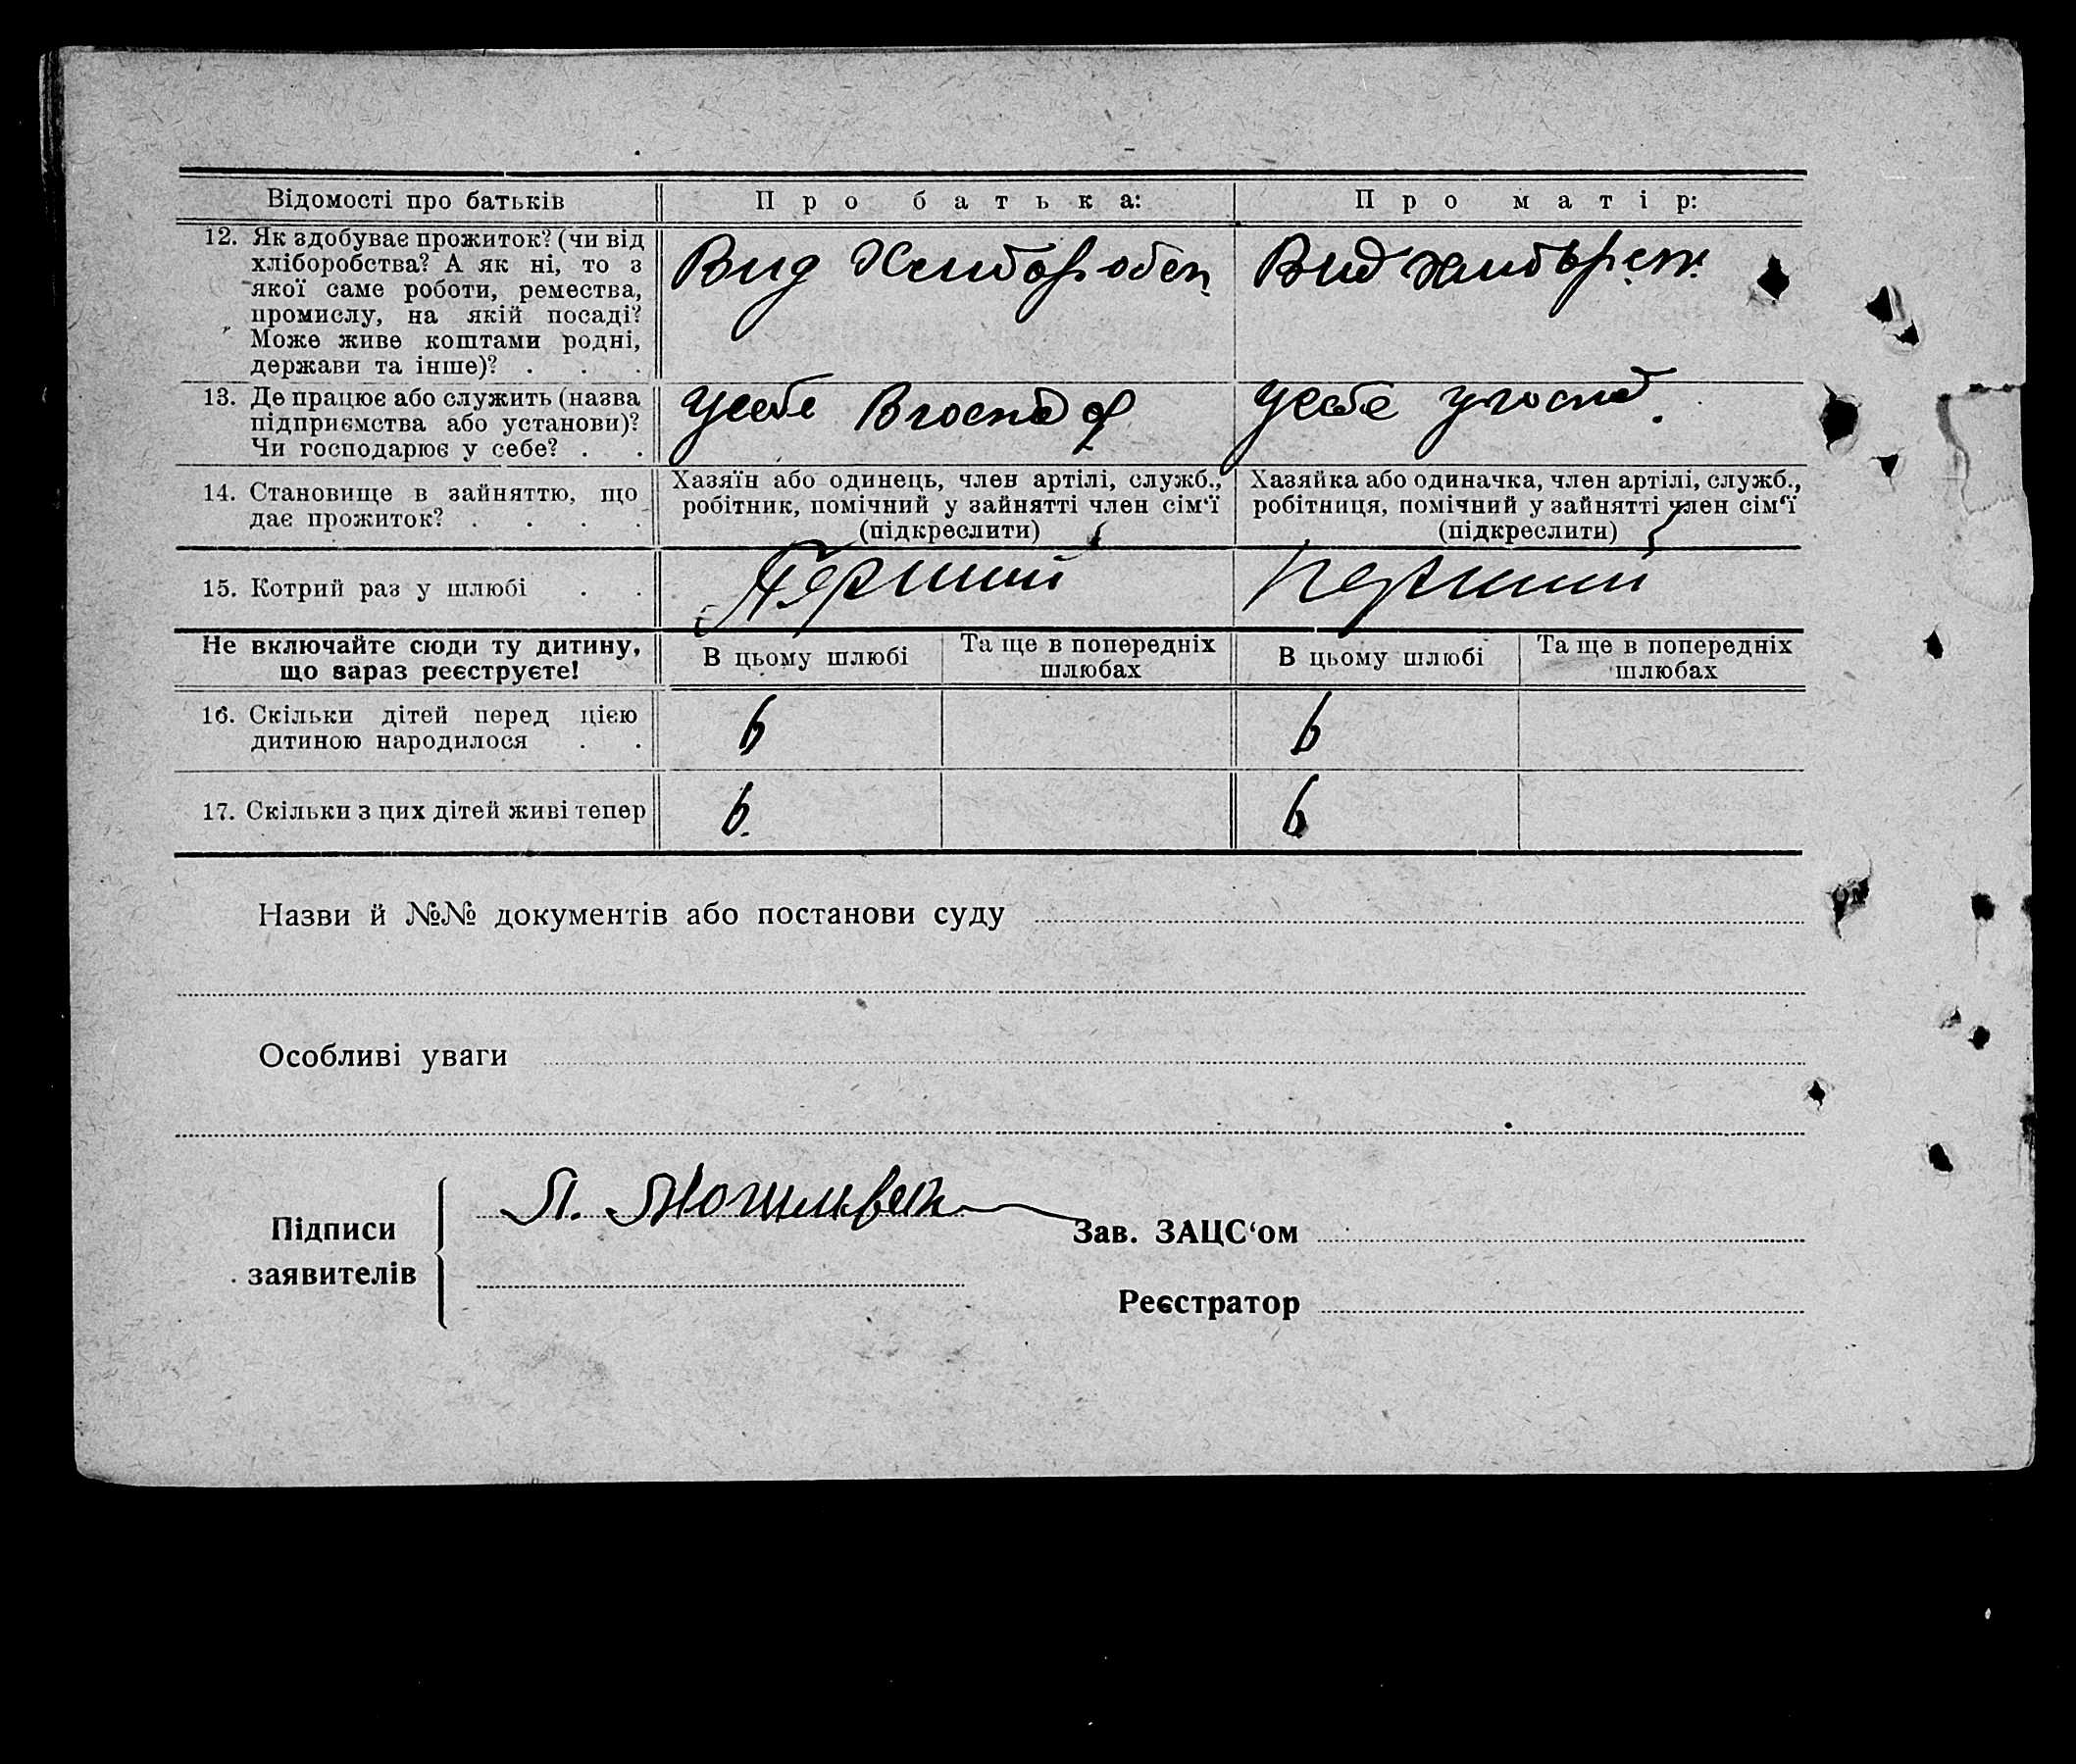 Відомості про батьків
Про батька:
Про матір:
12. Як здобуває прожиток? (чи від
хліборобства? А як ні, то з
якої саме роботи, ремества,
промислу, на якій посаді?
Може живе коштами родні,
держави та інше)? . . .
Вид Хлиборобст
Вид хлибър ст.
13. Де працює або служить (назва
підприємства або установи)?
Чи господарює у себе? . .
усебе Вгоспод
усебе угоспод.
14. Становище в зайняттю, що
дає прожиток? . . . .
Хазяїн або одинець, член артілі, служб.,
робітник, помічний у зайнятті член сім'ї
(підкреслити)
Хазяйка або одиначка, член артілі, служб.,
робітниця, помічний у зайнятті член сім'ї
(підкреслити)
15. Котрий раз у шлюбі . .
Перший
Перший
Не включайте сюди ту дитину,
що зараз реєструєте!
В цьому шлюбі
Та ще в попередніх
шлюбах
В цьому шлюбі
Та ще в попередніх
шлюбах
16. Скільки дітей перед цією
дитиною народилося . .
6
6
17. Скільки з цих дітей живі тепер
6
6
Назви й №№ документів або постанови суду
Особливі уваги
Підписи
заявителів
Зав. ЗАЦС'ом
Реєстратор